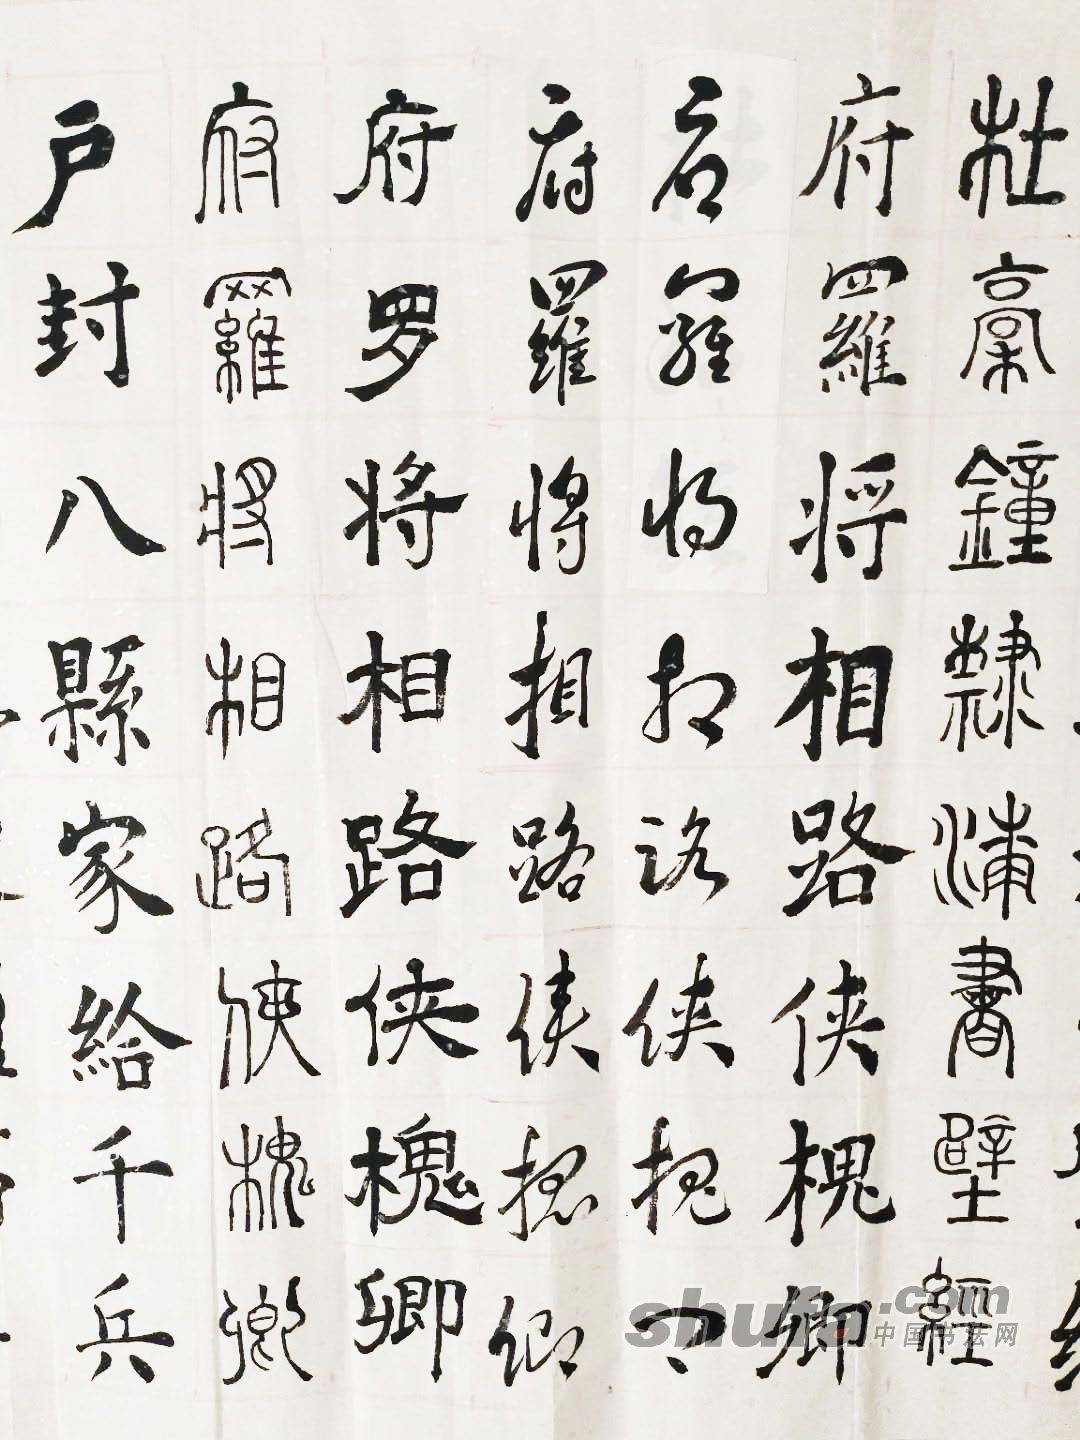 杜稾鐘隸漆書壁經
府羅将相路侠槐卿
府羅将相路侠槐卿
府羅将相路侠槐卿
府罗将相路侠槐卿
府羅将相路俠槐卿
户封八縣家給千兵
shufa.com
中国书法网